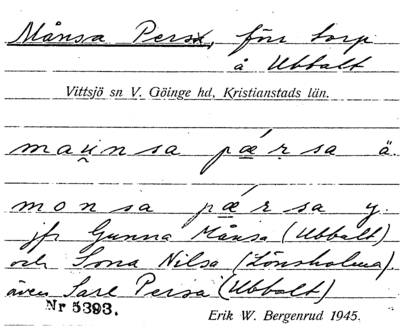 Månsa Persa, förr torp
å Ubbalt
Vittsjö sn V. Göinge hd, Kristianstads län.
mau̯nsa pǽrsa ä.
monsa pǽrsa y.
jfr Gunna Månsa (Ubbalt)
och Sona Nilsa (Lönsholma).
även Sare Persa (Ubbalt)
Nr 5393.
Erik W. Bergenrud 1945.